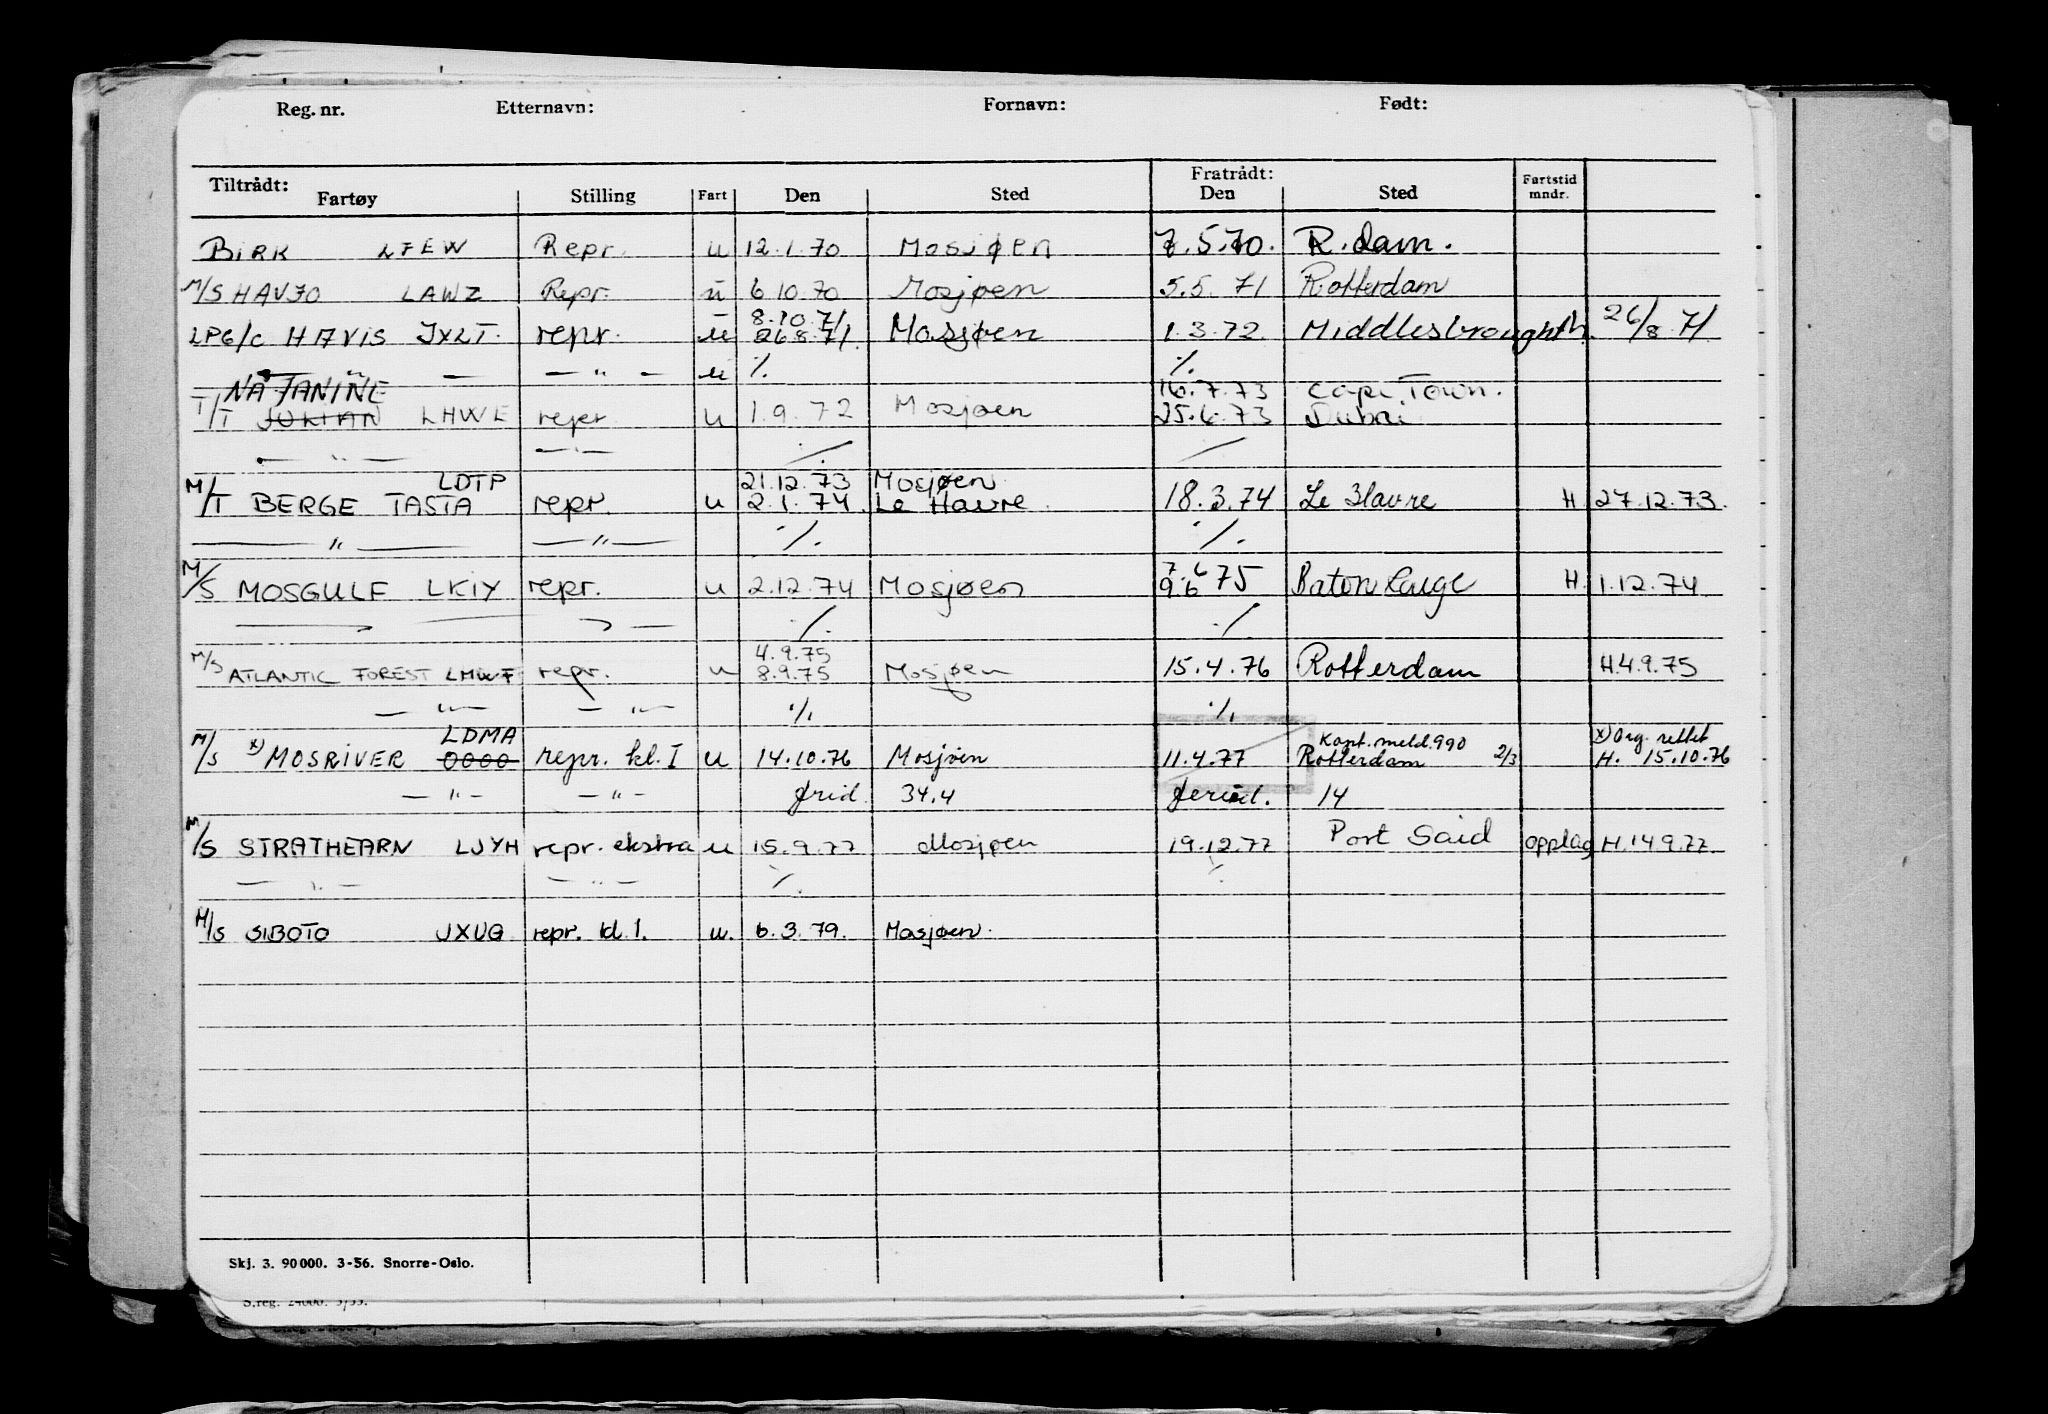 Reg. nr. Etternavn: Fornavn: Født:
Tiltrådt: Fratrådt:
Fartøy Stilling Fart Den Sted Den Sted Fartstid mndr.
BIRK LFEW Repr. u 12.1.70 Mosjøen 7.5.70. R.dam.
M/S HAVJO LAWZ Repr. u 6 10.70 Mosjøen 5.5.71 Rotterdam
8.10.71
LPG/C HAVIS JXLT. repr. u 26 8.71. Mosjøen 1.3.72. Middlesbrough 26/8 71
— " — u ·/.  ·/.
NAJANINE 16.7.73 Cape Town.
T/T JULIAN LHWE repr u 1.9.72 Mosjøen 25.6.73 Dubai
— " — — " — ·/. ·/.
LDTP 21.12.73 Mosjøen
M/T BERGE TASTA repr. u 2.1.74. Le Havre. 18.3.74 Le Havre H 27.12.73.
— " — — " — ·/. ·/.
7.6
M/S MOSGULF LKIY repr. u 2.12.74 Mosjøen 9.6 75 Baton Rouge H. 1.12.74
·/. ·/.
4.9.75
M/S ATLANTIC FOREST LMWF repr. u 8.9.75 Mosjøen 15.4.76 Rotterdam H.4.9.75
— " — — " — ·/. ·/.
LDMA Kapt.meld.990 x) Org. rettet
M/S x) MOSRIVER 0000 repr. kl. I u 14.10.76 Mosjøen 11.4.77 Rotterdam 2/3 H. 15.10.76
— " — — " — frid. 34.4 feried. 14
M/S STRATHEARN LJYH repr. ekstra u 15.9.77 Mosjøen 19.12.77 Port Said opplag H.14 9.77.
— " — — " — ·/. ·/.
M/S SIBOTO JXUG repr. kl.1. u. 6.3.79. Mosjøen.
Skj. 3. 90 000. 3-56. Snorre-Oslo.
S.reg. 24000. 3/55.